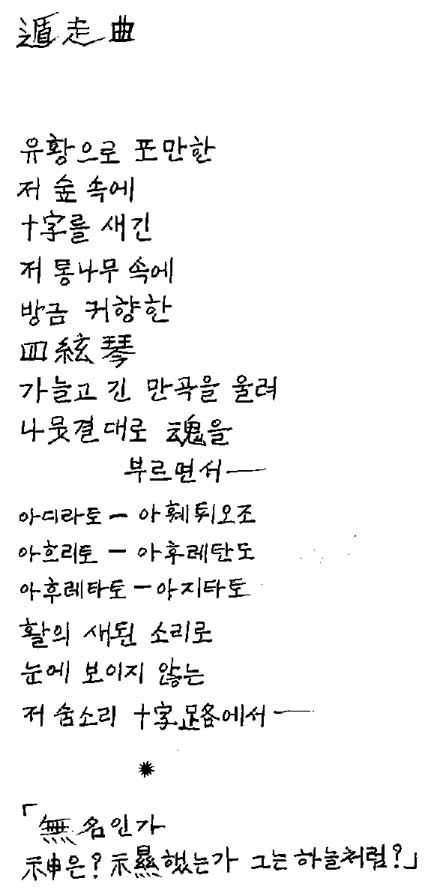 遁走曲
유황으로 포만한
저 숲 속에
十字를 새긴
저 통나무 속에
방금 귀향한
四絃琴
가늘고 긴 만곡을 울려
나뭇결대로 魂을
부르면서──
아디라토 ─ 아훼튀오조
아흐리토 ─ 아후레탄도
아후레타토 ─ 아지타토
활의 새된 소리로
눈에 보이지 않는
저 숨소리 十字路에서──
✹
「無名인가
神은? 示顯했는가 그는 하늘처럼?」